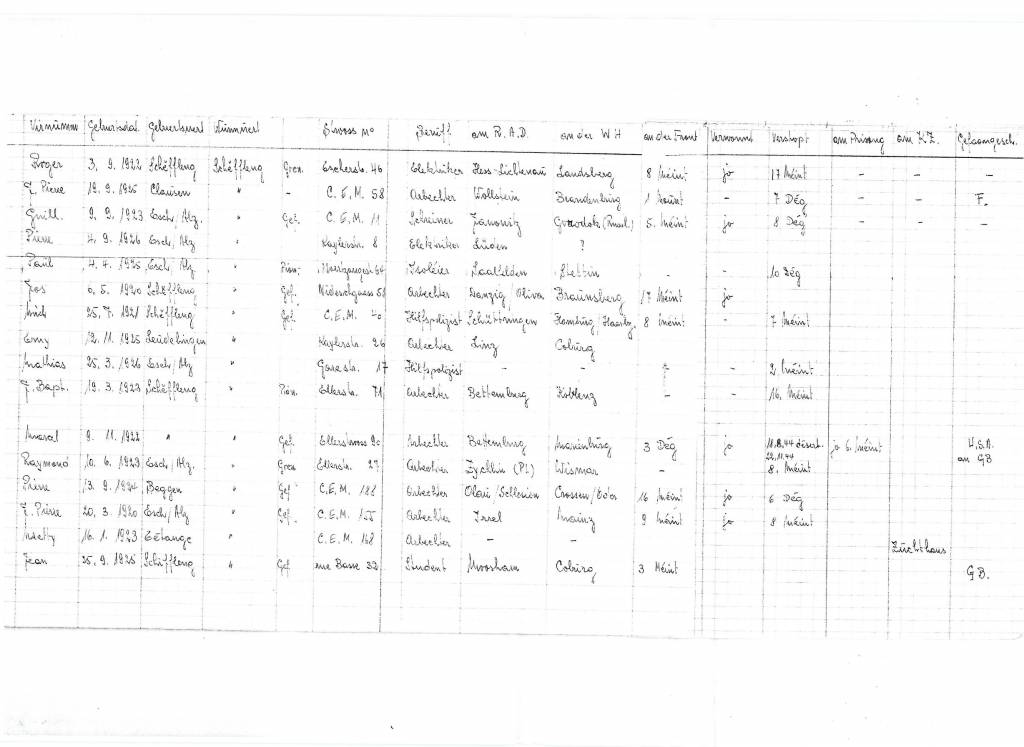 Virnumm Geburtsdat. Geburtsuert Wunnuert Strooss No Beruff. am R.A.D. an der WH an der Front Verwonnt Verstopt am Prisong am K.Z. Gefaangesch.
Roger 3. 9. 1922 Schëffleng Schëffleng Gren. Escherstr. 46 Elektriker Hess-Lichtenau Landsberg 8 Méint jo 17 Méint - - -
J. Pierre 19. 9. 1925 Clausen " - C.E.M. 58 Arbechter Wollstein Brandenburg 1 Mount - 7 Dég - - F.
Guill. 9. 9. 1923 Esch/Alz. " Gef. C.E.M. 11 Schreiner Janowitz 5. Méint jo 8 Dég - - -
Pierre 4. 9. 1926 Esch/Alz " Kaylerstr. 8 Elektriker Lüden ?
Paul 4. 4. 1925 Esch/Alz " Pion. 64 Isoléier Saalfelden Stettin - - 10 Dég
Jos 5. 1920 Schëffleng " Gef. 58 Arbechter Danzig/Oliva Braunsberg 17 Méint jo
25. 7. 1921 Schëffleng " Gef. C.E.M. 40 Hilfspolizist Schüttringen Hamburg/ 8 Méint - 7 Méint
12. 11. 1925 Leudelingen " Kaylerstr. 26 Arbechter Linz Coburg
Mathias 25. 3. 1926 Esch/Alz " Garestr. 17 Hilfspolizist - - - 2 Méint
J. Bapt. 19. 3. 1923 Schëffleng " Pion. Ellerstr. 71 Arbechter Bettemburg Koblenz - - 16. Méint
Marcel 9. 11. 1922 " " Gef. Ellerstrooss 90 Arbechter Betemburg Marienburg 3 Dég jo 11.8.44 désert. jo 5. Méint U.S.A.
22.11.44 an GB
Raymond 10. 6. 1923 Esch/Alz. " Gren Ellerstr. 27 Arbechter Zychlin (Pl.) Wismar - 8. Méint
Pierre 13. 9. 1924 Beggen " Gef. C.E.M. 188 Arbechter Olau/Schlesien Crossen/Oder 16 Méint jo 6 Dég
J. Pierre 20. 3. 1920 Esch/Alz " Gef. C.E.M. 155 Arbechter Irrel Mainz 9 Méint jo 8 Méint
Metty 16. 1. 1923 Tétange " C.E.M. 168 Arbechter - - Zuchthaus
Jean 25. 9. 1925 Schiffleng " Gef rue Basse 32 Student Moosham Coburg 3 Méint GB.